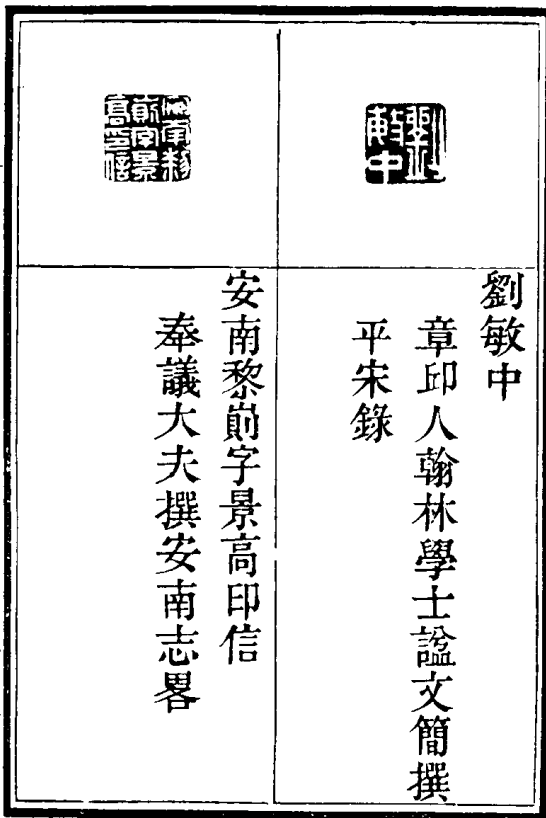 劉敏中
劉敏中
章邱人翰林學士諡文簡撰
平宋錄
安南黎
崱字景
高印信
安南黎崱字景高印信
奉議大夫撰安南志畧